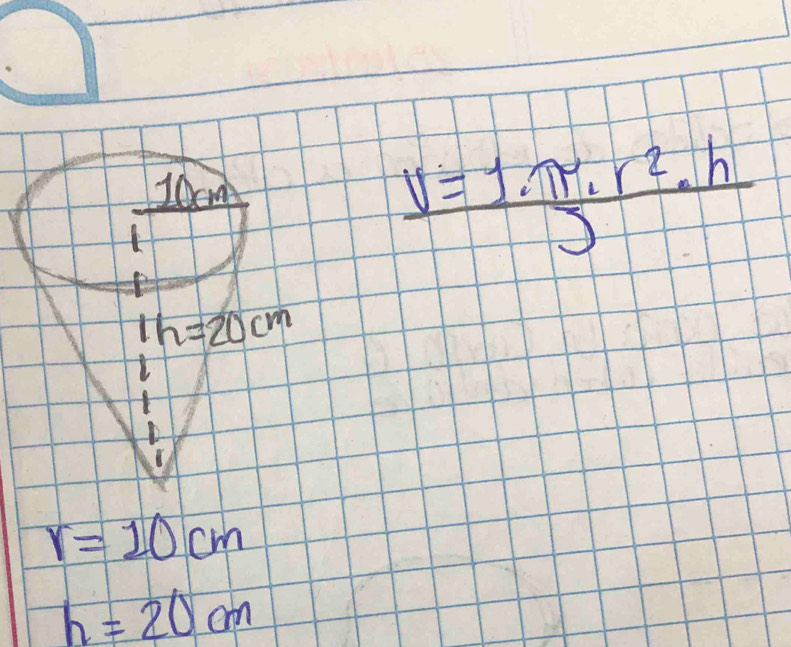 10cm
h=20cm
V = 1 . π . r² . h
3
r = 10 cm
h = 20 cm